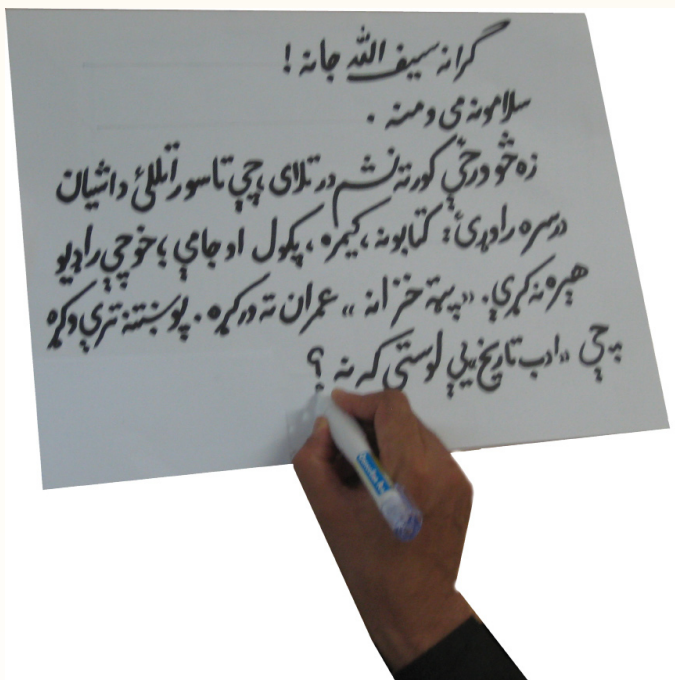 ګرانه سیف الله جانه !
سلامونه مې ومنه .
زه خو درځې کورته نشم درتلای ، چې تاسو راتللئ دا شیان
درسره راوړئ : کتابونه ، کیمره ، پکول او جامې ؛ خو چې راډیو
هېره نه کړې . «پټه خزانه» عمران ته ورکړه . پوښتنه ترې وکړه
چې «ادب تاریخ یې لوستی که نه ؟